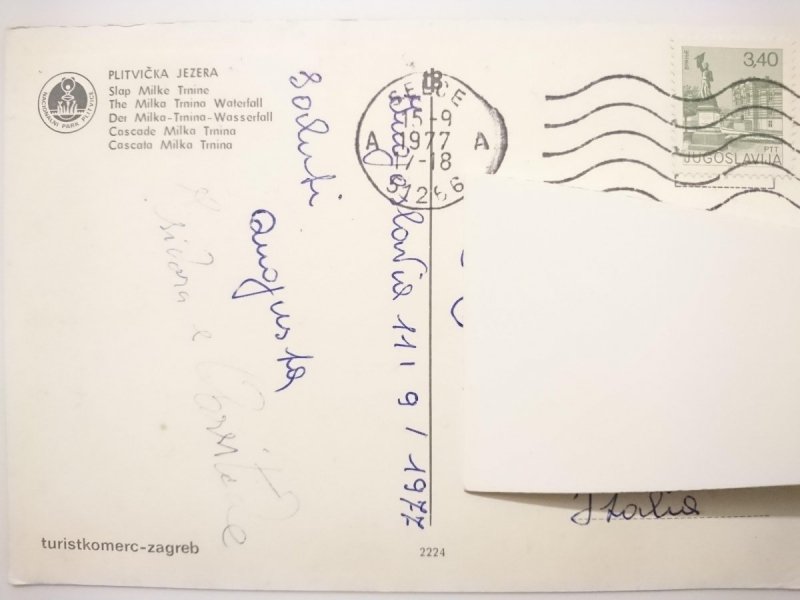 PLITVIČKA JEZERA
Slap Milke Trnine
The Milka Trnina Waterfall
Der Milka-Trnina-Wasserfall
Cascade Milka Trnina
Cascata Milka Trnina
NACIONALNI PARK PLITVICE
saluti
augusta
Jugoslavia 11 / 9 / 1977
SELCE
15-9
A 1977 A
17-18
51266
3,40
PTT
JUGOSLAVIJA
Italia
turistkomerc-zagreb
2224